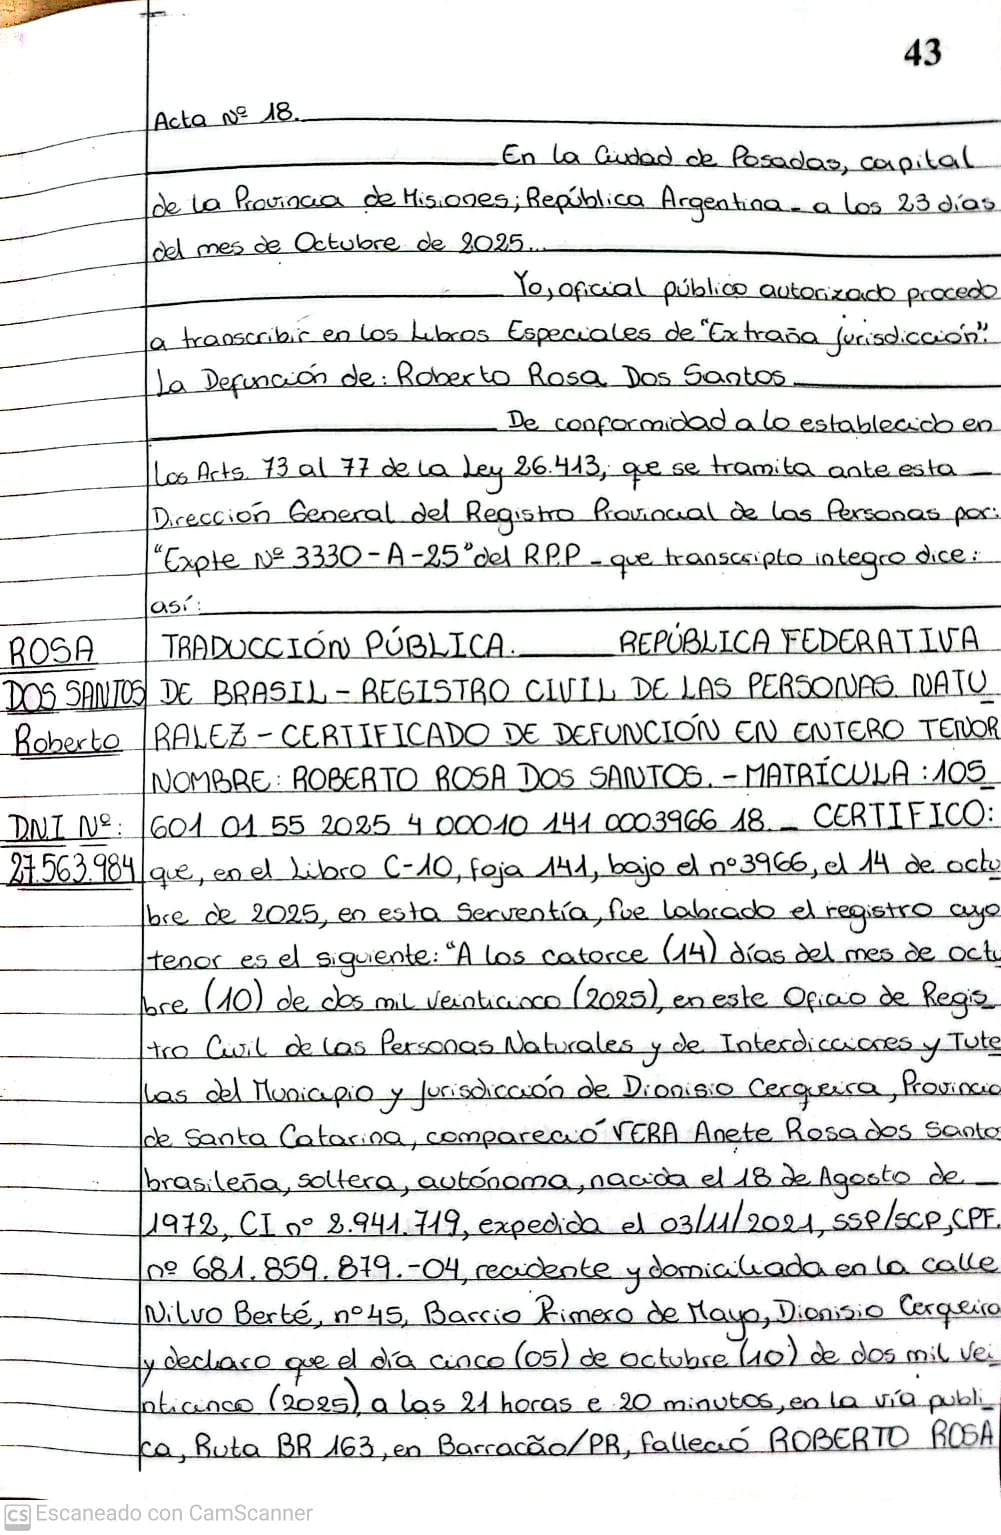 43
Acta Nº 18.
En la Ciudad de Posadas, capital
de la Provincia de Misiones; República Argentina - a los 23 días
del mes de Octubre de 2025...
Yo, oficial público autorizado procedo
a transcribir en los Libros Especiales de "Extraña jurisdicción".
La Defunción de: Roberto Rosa Dos Santos
De conformidad a lo establecido en
los Arts. 73 al 77 de la Ley 26.413, que se tramita ante esta
Dirección General del Registro Provincial de las Personas por:
"Expte Nº 3330-A-25" del R.P.P - que transcripto integro dice:
así:
ROSA
DOS SANTOS
Roberto
DNI Nº:
27.563.984
TRADUCCIÓN PÚBLICA. REPÚBLICA FEDERATIVA
DE BRASIL - REGISTRO CIVIL DE LAS PERSONAS NATU
RALEZ - CERTIFICADO DE DEFUNCIÓN EN ENTERO TENOR
NOMBRE: ROBERTO ROSA DOS SANTOS. - MATRÍCULA: 105
601 01 55 2025 4 00010 141 0003966 18. - CERTIFICO:
que, en el Libro C-10, foja 141, bajo el nº 3966, el 14 de octu
bre de 2025, en esta Serventía, fue labrado el registro cuyo
tenor es el siguiente: "A los catorce (14) días del mes de octu
bre (10) de dos mil veinticinco (2025), en este Oficio de Regis
tro Civil de las Personas Naturales y de Interdicciones y Tute
las del Municipio y jurisdicción de Dionisio Cerqueira, Provincia
de Santa Catarina, compareció VERA Anete Rosa dos Santos
brasileña, soltera, autónoma, nacida el 18 de Agosto de
1972, CI nº 2.941.719, expedida el 03/11/2021, SSP/SCP, CPF.
nº 681.859.879.-04, recidente y domiciliada en la calle
Nilvo Berté, nº 45, Barrio Primero de Mayo, Dionisio Cerqueira
y declaro que el día cinco (05) de octubre (10) de dos mil vei
nticinco (2025) a las 21 horas e 20 minutos, en la vía públi
ca, Ruta BR 163, en Barracão/PR, falleció ROBERTO ROSA
CS Escaneado con CamScanner